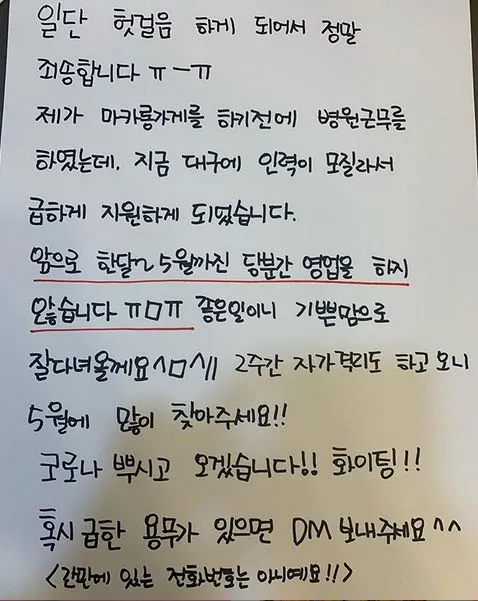 일단 헛걸음 하게 되어서 정말
죄송합니다 ㅠㅡㅠ
제가 마카롱가게를 하기전에 병원근무를
하였는데. 지금 대구에 인력이 모질라서
급하게 지원하게 되었습니다.
앞으로 한달~5월까진 당분간 영업을 하지
않습니다 ㅠㅁㅠ 좋은일이니 기쁜맘으로
잘다녀올께요^ㅁ^// 2주간 자가격리도 하고오니
5월에 많이 찾아주세요!!
코로나 뿌시고 오겠습니다!! 화이팅!!
혹시 급한 용무가 있으면 DM 보내주세요^^
<간판에 있는 전화번호는 아니예요!!>